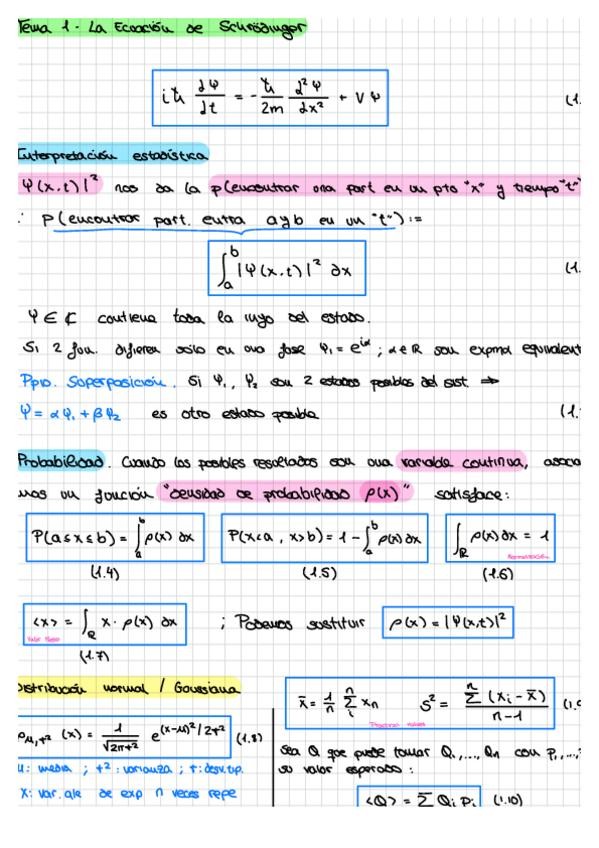 Tema 1. La Ecuación de Schrödinger
iħ ∂Ψ/∂t = - ħ/2m ∂²Ψ/∂x² + VΨ (1.
Interpretación estadística
Ψ(x,t)|² nos da la p(encontrar una part en un pto "x" y tiempo "t"
∴ P(encontrar part. entra a y b en un "t") :=
∫ₐᵇ |Ψ(x,t)|² ∂x (1.
Ψ ∈ ₵ contiene toda la info del estado.
Si 2 fun. difieren solo en una fase Ψ₁ = e^{iα} ; α∈ℝ son expma equivalent
Ppio. Superposición. Si Ψ₁, Ψ₂ son 2 estados posibles del sist. ⇒
Ψ = αΨ₁ + βΨ₂ es otro estado posible (1.
Probabilidad. Cuando los posibles resultados son una variable continua, asocia
mos un función "densidad de probabilidad ρ(x)" satisface:
P(a≤x≤b) = ∫ₐᵇ ρ(x) ∂x P(x<a, x>b) = 1 - ∫ₐᵇ ρ(x)∂x ∫_ℝ ρ(x)∂x = 1
Normalización
(1.4) (1.5) (1.6)
<x> = ∫_ℝ x · ρ(x) ∂x ; Podemos sustituir ρ(x) = |Ψ(x,t)|²
Valor
(1.7)
Distribución normal / Gaussiana
ρ_{μ,σ²}(x) = 1/√2πσ² e^{(x-μ)²/2σ²} (1.8)
μ: media ; σ²: varianza ; σ: desv. tip.
X: var. ale de exp n veces repe
x̄ = 1/n Σᵢⁿ xₙ S² = Σⁿ (xᵢ - x̄)/n-1 (1.9
valores
Sea Q que puede tomar Q₁,...,Qₙ con p₁,...,
su valor esperado:
<Q> = Σ Qᵢ Pᵢ (1.10)